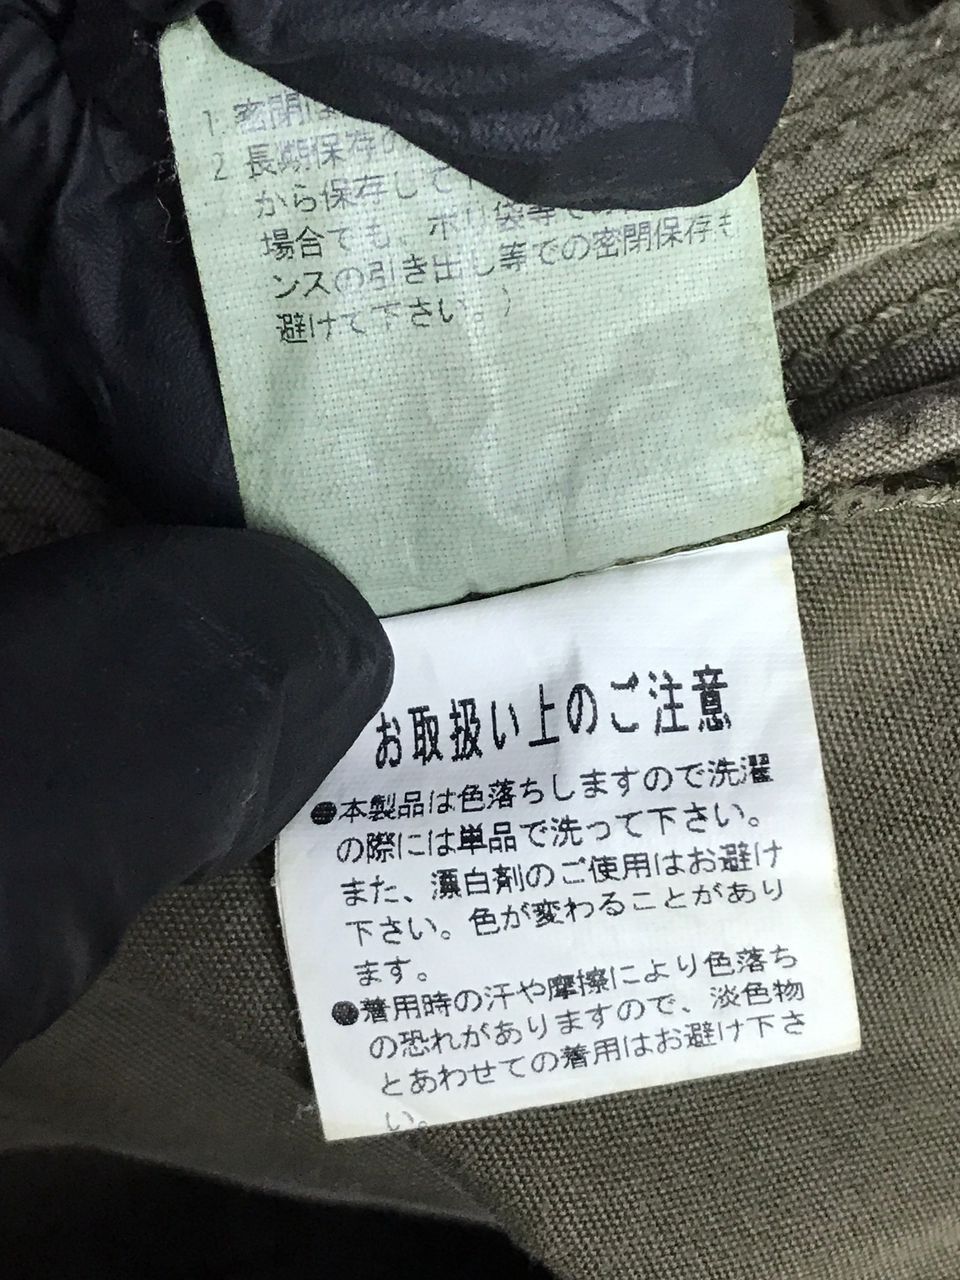 1. 密閉
2 長期保存の
から保存して
場合でも、ポリ袋等で
ンスの引き出し等での密閉保存も
避けて下さい。)
お取扱い上のご注意
●本製品は色落ちしますので洗濯
の際には単品で洗って下さい。
また、漂白剤のご使用はお避け
下さい。色が変わることがあり
ます。
●着用時の汗や摩擦により色落ち
の恐れがありますので、淡色物
とあわせての着用はお避け下さ
い。